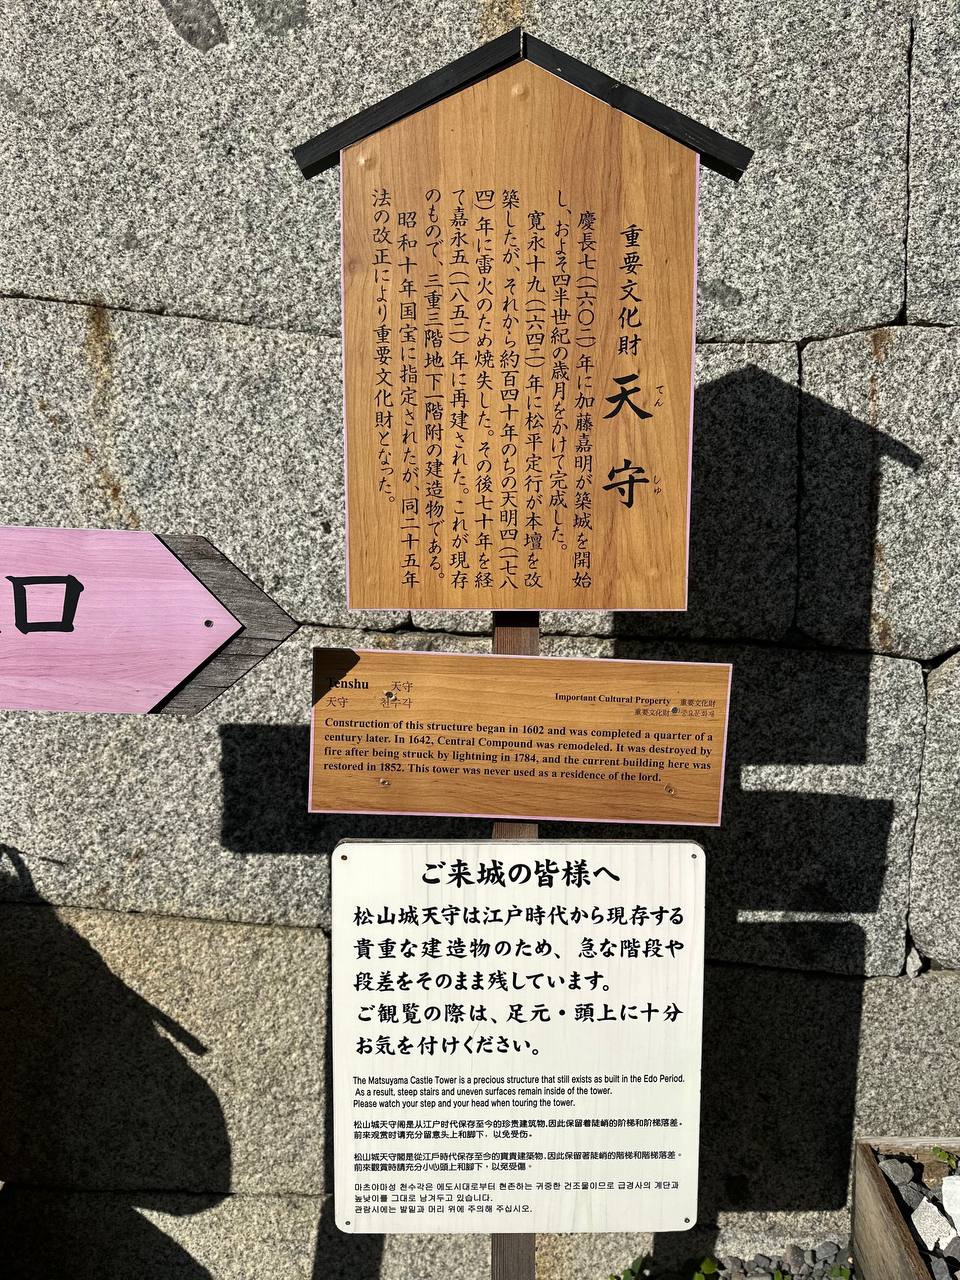 重要文化財 天守
てんしゅ
慶長七(一六〇二)年に加藤嘉明が築城を開始
し、およそ四半世紀の歳月をかけて完成した。
寛永十九(一六四二)年に松平定行が本壇を改
築したが、それから約百四十年のちの天明四(一七八
四)年に雷火のため焼失した。その後七十年を経
て嘉永五(一八五二)年に再建された。これが現存
のもので、三重三階地下一階附の建造物である。
昭和十年国宝に指定されたが、同二十五年
法の改正により重要文化財となった。
口
Tenshu 天守
天守 천수각
Important Cultural Property 重要文化財
重要文化財 중요문화재
Construction of this structure began in 1602 and was completed a quarter of a
century later. In 1642, Central Compound was remodeled. It was destroyed by
fire after being struck by lightning in 1784, and the current building here was
restored in 1852. This tower was never used as a residence of the lord.
ご来城の皆様へ
松山城天守は江戸時代から現存する
貴重な建造物のため、急な階段や
段差をそのまま残しています。
ご観覧の際は、足元・頭上に十分
お気を付けください。
The Matsuyama Castle Tower is a precious structure that still exists as built in the Edo Period.
As a result, steep stairs and uneven surfaces remain inside of the tower.
Please watch your step and your head when touring the tower.
松山城天守阁是从江户时代保存至今的珍贵建筑物,因此保留着陡峭的阶梯和阶梯落差。
前来观赏时请充分留意头上和脚下，以免受伤。
松山城天守閣是從江戶時代保存至今的寶貴建築物,因此保留著陡峭的階梯和階梯落差。
前來觀賞時請充分小心頭上和腳下，以免受傷。
마츠야마성 천수각은 에도시대로부터 현존하는 귀중한 건조물이므로 급경사의 계단과
높낮이를 그대로 남겨두고 있습니다.
관람시에는 발밑과 머리 위에 주의해 주십시오.